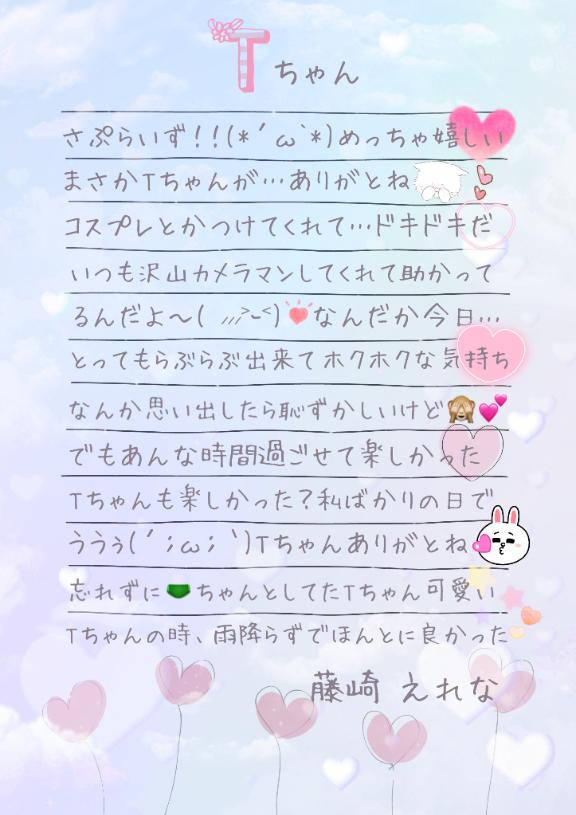 Tちゃん
さぷらいず!!(*´ω`*)めっちゃ嬉しい
まさかTちゃんが…ありがとね
コスプレとかつけてくれて…ドキドキだ
いつも沢山カメラマンしてくれて助かって
るんだよ〜( ⸝⸝⸝>ᴗ<)なんだか今日…
とってもらぶらぶ出来てホクホクな気持ち
なんか思い出したら恥ずかしいけど🙈💕
でもあんな時間過ごせて楽しかった
Tちゃんも楽しかった?私ばかりの日で
ううぅ(´;ω;`)Tちゃんありがとね
忘れずに🩲ちゃんとしてたTちゃん可愛い
Tちゃんの時、雨降らずでほんとに良かった
藤崎 えれな